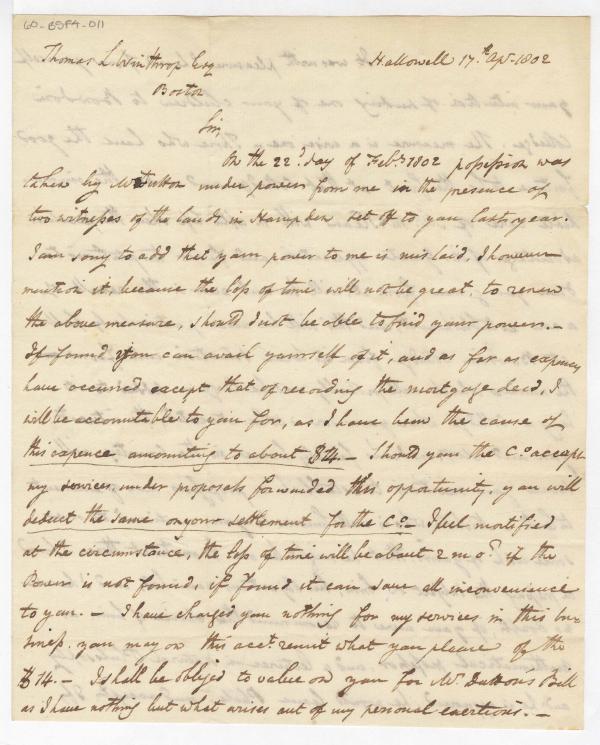 60-BSF4-011
Thomas L Winthrop Esq Hallowell 17th Apl 1802
Boston
Sir
On the 22d day of Feby 1802 possession was
taken by Mr Dutton under powers from me in the presence of
two witnesses of the lands in Hampden set off to you last year.
I am sorry to add that your power to me is mislaid, I however
mention it, because the loss of time will not be great, to renew
the above measure, should I not be able to find your powers.-
If found you can avail yourself of it, and as far as expences
have occurred except that of recording the mortgage deed, I
will be accountable to you for, as I have been the cause of
this expence amounting to about $14.- Should you & the Co. accept
my services, under proposals forwarded this opportunity, you will
deduct the same on your settlement for the Co.- I feel mortified
at the circumstance, the loss of time will be about 2 mos. if the
Power is not found, if found it can save all inconvenience
to you.- I have charged you nothing for my services in this bu-
siness. you may on this acct. remit what you please of the
$14.- I shall be obliged to value on you for Mr Duttons Bill
as I have nothing but what arises out of my personal exertions.-